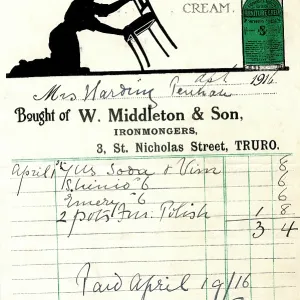 CREAM.
1916
Mrs Harding
Bought of W. Middleton & Son,
IRONMONGERS,
3, St. Nicholas Street, TRURO.
April 1st Soda & Vim 6
6 6
Emery 6 6
2 pots Fur. Polish 1 8
3 4
Paid April 19/16